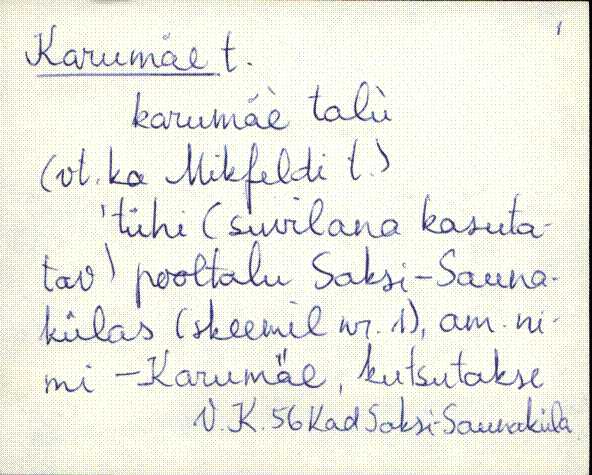 1
Karumäe t.
karumäè talù
(vt. ka Mikfeldi t.)
'tühi (suvilana kasuta-
tav) pooltalu Saksi-Sauna-
külas (skeemil nr. 1), am. ni-
mi - Karumäe, kutsutakse
V. K. 56 Kad Saksi-Saunaküla